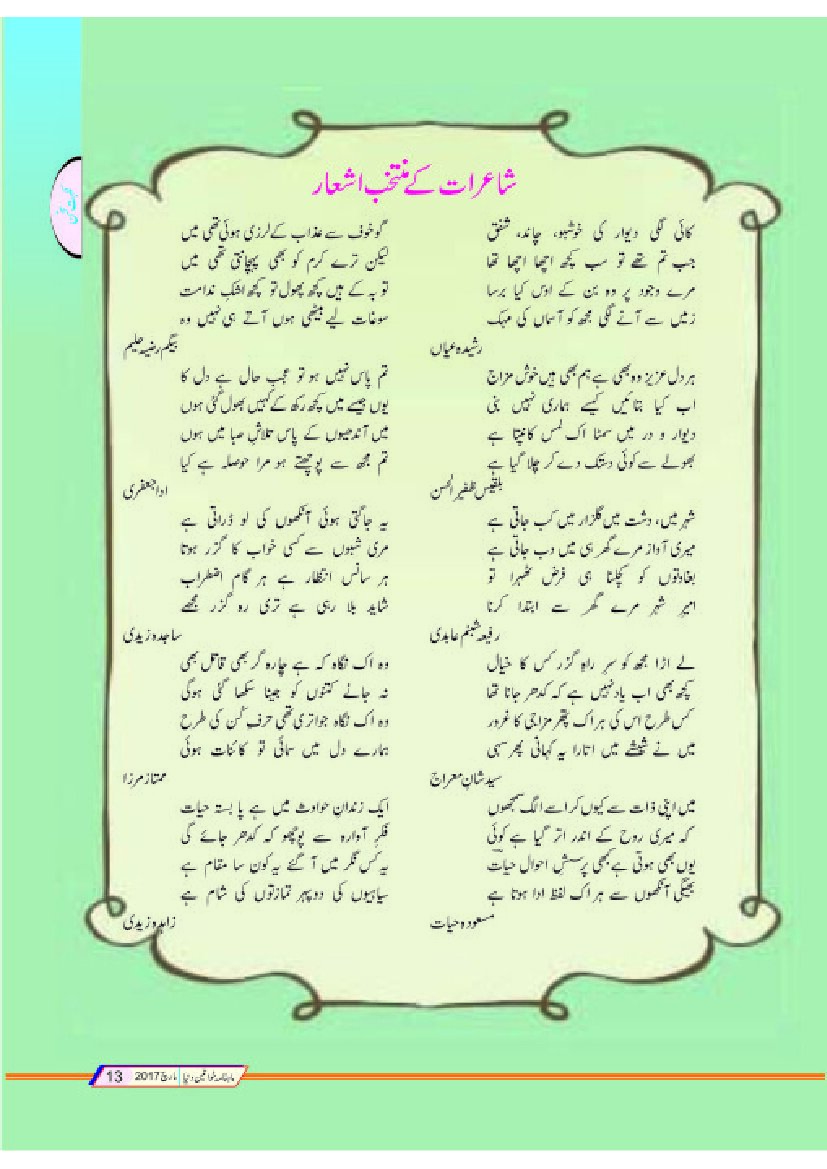 شاعرات کے منتخب اشعار
کائی لگی دیوار کی خوشبو، چاند، شفق
جب تم تھے تو سب کچھ اچھا اچھا تھا
مرے وجود پر وہ بن کے اوس کیا برسا
زمیں سے آنے لگی مجھ کو آسماں کی مہک
رشیدہ عیاں
ہر دل عزیز وہ بھی ہے ہم بھی ہیں خوش مزاج
اب کیا بتائیں کیسے ہماری نہیں بنی
دیوار و در میں سمٹا اک لمس کانپتا ہے
بھولے سے کوئی دستک دے کر چلا گیا ہے
بلقیس ظفیر الحسن
شہر میں، دشت میں گلزار میں کب جاتی ہے
میری آواز مرے گھر ہی میں دب جاتی ہے
بغاوتوں کو کچلنا ہی فرض ٹھہرا تو
امیر شہر مرے گھر سے ابتدا کرنا
رفیعہ شبنم عابدی
لے اڑا مجھ کو سرِ راہ گزر کس کا خیال
کچھ بھی اب یاد نہیں ہے کہ کدھر جانا تھا
کس طرح اس کی ہر اک پتھر مزاجی کا غرور
میں نے شیشے میں اتارا یہ کہانی پھر سہی
سیدہ شان معراج
میں اپنی ذات سے کیوں کر اسے الگ سمجھوں
کہ میری روح کے اندر اتر گیا ہے کوئی
یوں بھی ہوتی ہے کبھی پرسشِ احوال حیات
بھیگی آنکھوں سے ہر اک لفظ ادا ہوتا ہے
مسعودہ حیات
گو خوف سے عذاب کے لرزی ہوئی تھی میں
لیکن ترے کرم کو بھی پہچانتی تھی میں
توبہ کے ہیں کچھ پھول تو کچھ اشکِ ندامت
سوغات لیے بیٹھی ہوں آتے ہی نہیں وہ
بیگم رضیہ حلیم
تم پاس نہیں ہو تو عجب حال ہے دل کا
یوں جیسے میں کچھ رکھ کے کہیں بھول گئی ہوں
میں آندھیوں کے پاس تلاشِ صبا میں ہوں
تم مجھ سے پوچھتے ہو مرا حوصلہ ہے کیا
ادا جعفری
یہ جاگتی ہوئی آنکھوں کی لو ڈراتی ہے
مری شبوں سے کسی خواب کا گزر ہوتا
ہر سانس انتظار ہے ہر گام اضطراب
شاید بلا رہی ہے تری رہ گزر مجھے
ساجدہ زیدی
وہ اک نگاہ کہ ہے چارہ گر بھی قاتل بھی
نہ جانے کتنوں کو جینا سکھا گئی ہوگی
وہ اک نگاہ جو اتری تھی حرفِ کُن کی طرح
ہمارے دل میں سمائی تو کائنات ہوئی
ممتاز مرزا
ایک زندانِ حوادث میں ہے پابستہ حیات
فکرِ آوارہ سے پوچھو کہ کدھر جائے گی
یہ کس نگر میں آ گئے یہ کون سا مقام ہے
سیاہیوں کی دوپہر تمازتوں کی شام ہے
زاہدہ زیدی
ماہنامہ خواتین دنیا مارچ 2017 13